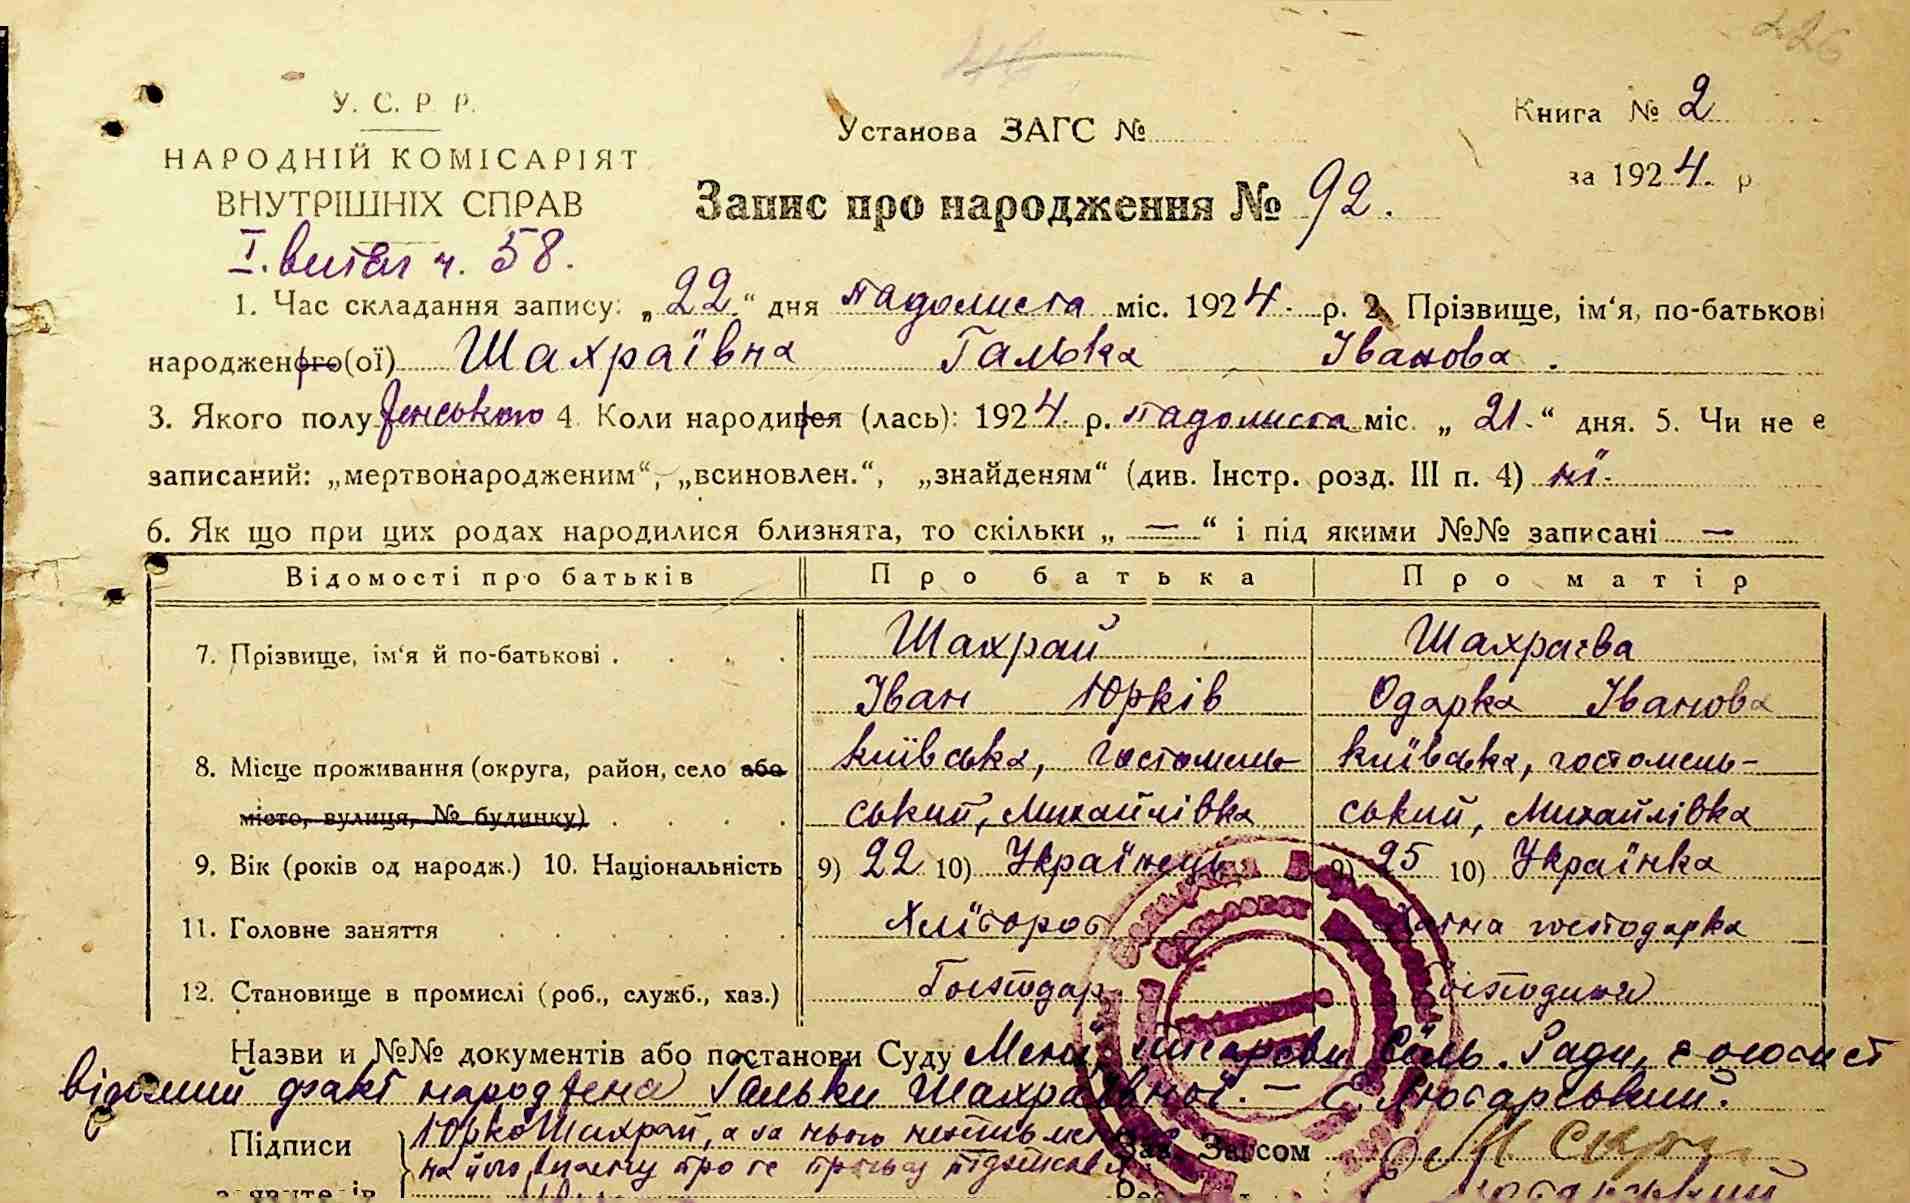 226
У. С. Р. Р.
НАРОДНІЙ КОМІСАРІЯТ
ВНУТРІШНІХ СПРАВ
Установа ЗАГС №
Книга № 2
за 1924. р
Запис про народження № 92.
І. витяг ч. 58.
1. Час складання запису: „22“ дня падолиста міс. 1924 р. 2. Прізвище, ім‘я, по-батькові
народженого(ої) Шахраївна Галька Іванова.
3. Якого полу женського 4. Коли народився (лась): 1924 р. падолиста міс. „21.“ дня. 5. Чи не є
записаний: „мертвонародженим“, „всиновлен.“, „знайденям“ (див. Інстр. розд. III п. 4) нї.
6. Як що при цих родах народилися близнята, то скільки „—“ і під якими №№ записані —
Відомості про батьків Про батька Про матір
7. Прізвище, ім‘я й по-батькові Шахрай Шахраєва
Іван Юрків Одарка Іванова
8. Місце проживання (округа, район, село або київська, гостомель- київська, гостомель-
місто, вулиця, № будинку) ський, Михайлівка ський, Михайлівка
9. Вік (років од народж.) 10. Національність 9) 22 10) Українець 9) 25 10) Українка
11. Головне заняття Хлїбороб Хатна господарка
12. Становище в промислі (роб., служб., хаз.) Господар Господиня
Назви и №№ документів або постанови Суду Менї, писареви Сїль. Ради, є особист
відомий факт народженя Гальки Шахраївної. —
Підписи Юрко Шахрай, а за нього Зав. Загсом
на його про це